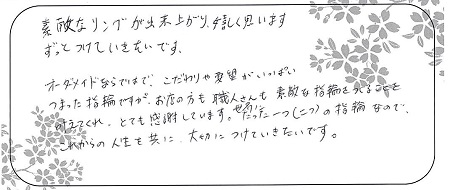 素敵なリングが出来上がり、嬉しく思います
ずっとつけていきたいです。
オーダーメイドならではで、こだわりや要望がいっぱい
つまった指輪ですが、お店の方も職人さんも素敵な指輪をつくることを
考えてくれ、とても感謝しています。世界にたった一つ(二つ)の指輪なので、
これからの人生も共に、大切につけていきたいです。